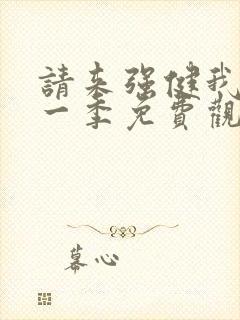 請来强健我
一季免費觀
幕心